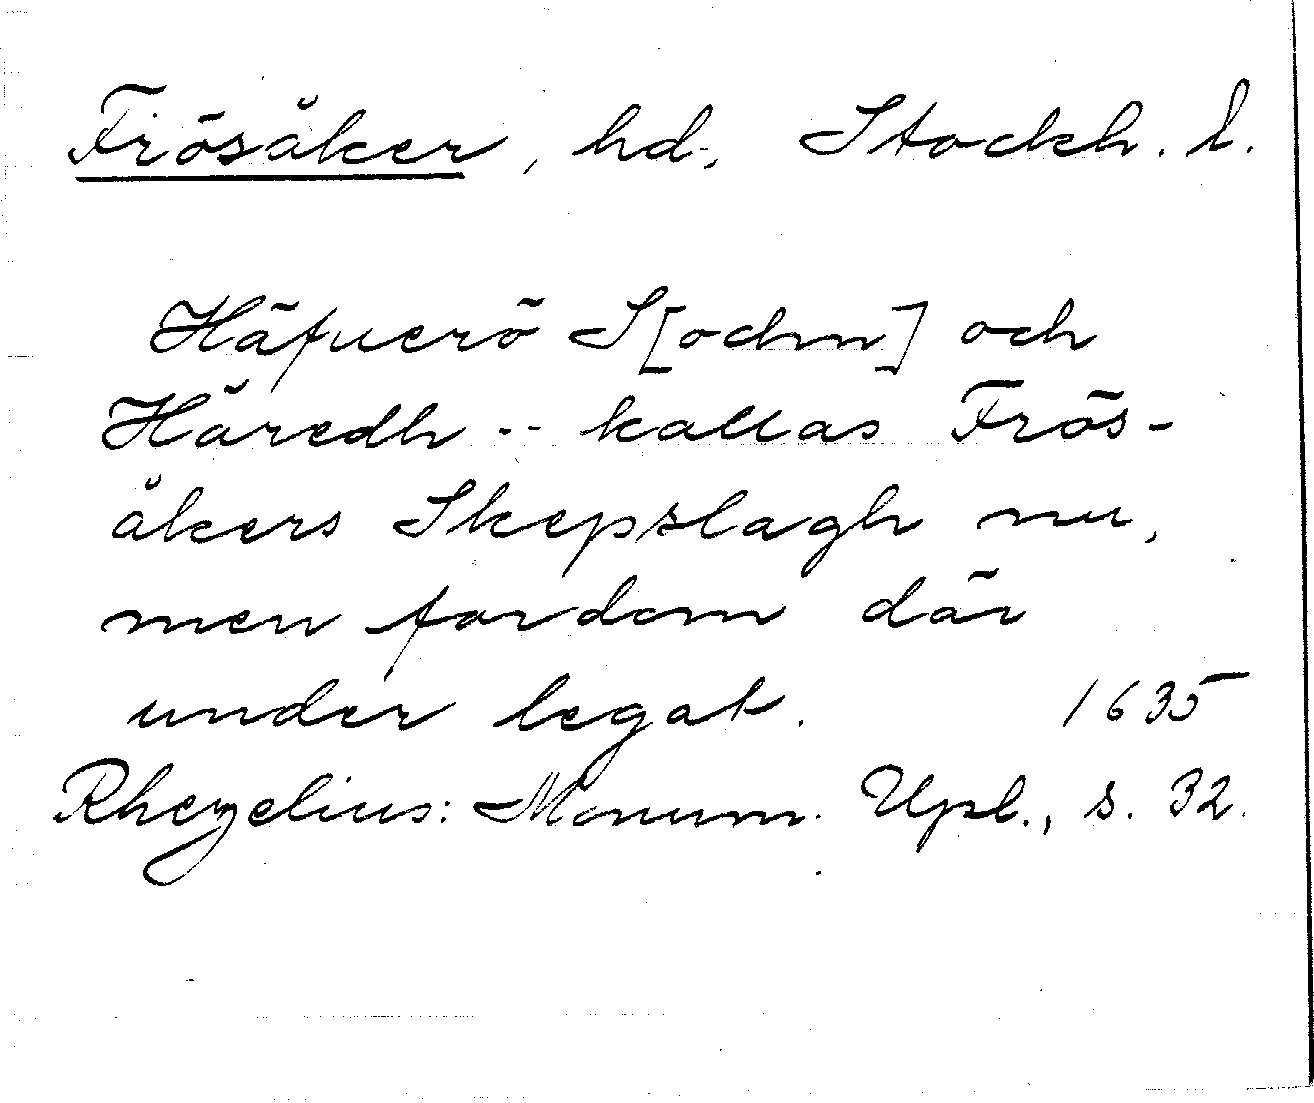 Frösåker, hd., Stockh. l.
Häfuerö S[ochn] och
Häredh -- kallas Frös-
åkers Skepzlagh nu,
men fordom där
under legat. 1635
Rhezelius: Monum. Upl., s. 32.